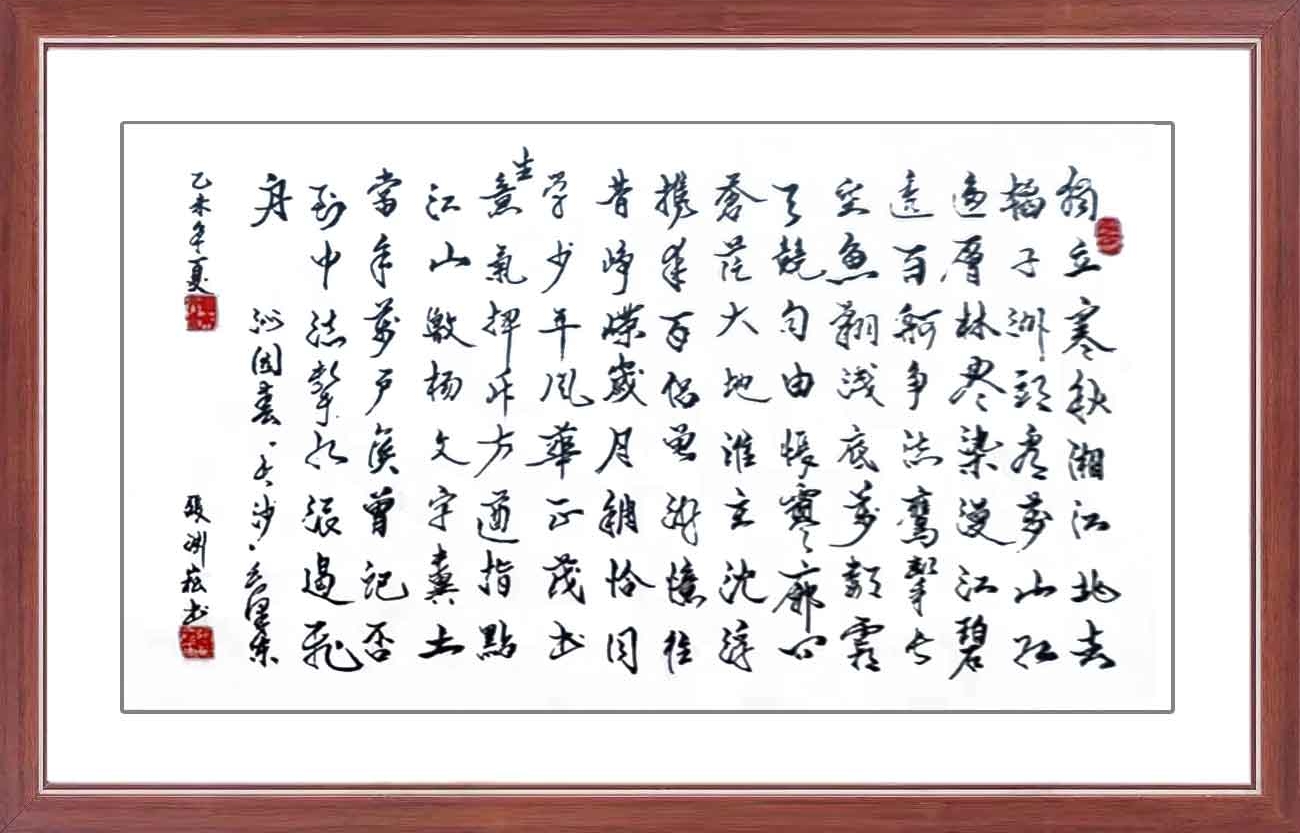 獨立寒秋湘江北去
橘子洲頭看萬山紅
遍層林尽染漫江碧
透百舸争流鷹擊长
空魚翔浅底萬類霜
天競自由悵寥廓问
蒼茫大地誰主沈浮
携来百侣曾游憶往
昔峥嵘歲月稠恰同
学少年風華正茂书
生意氣揮斥方遒指點
江山激揚文字糞土
當年萬户侯曾記否
到中流擊水浪遏飛
舟 沁园春·长沙·毛泽东
乙未年夏 張渊崧书